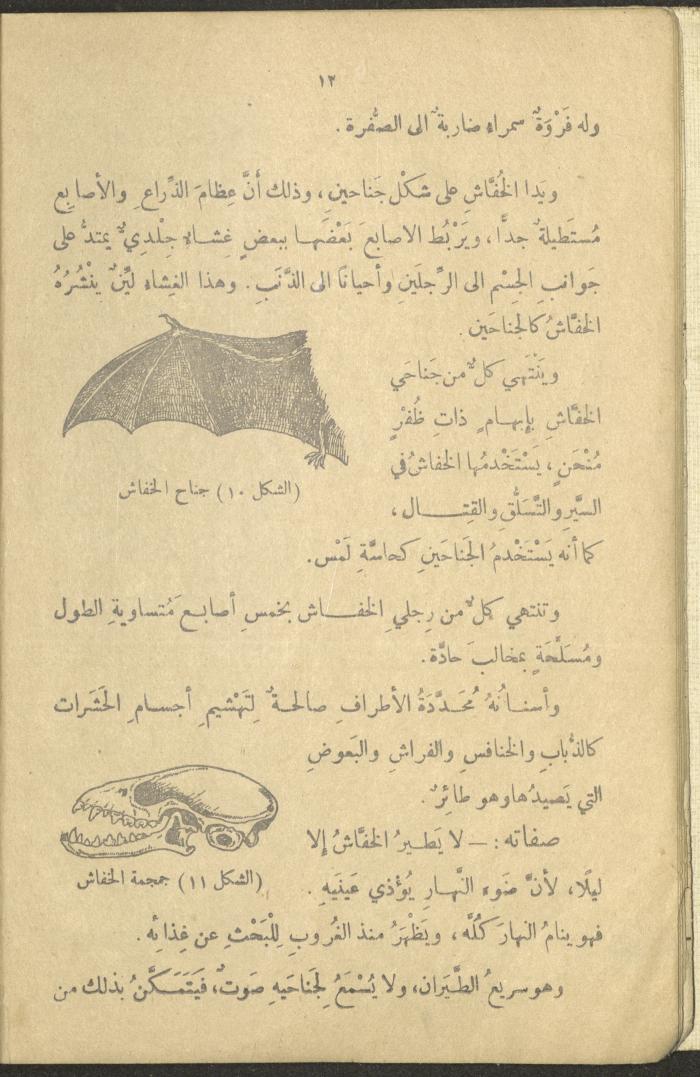 ١٢
وله فَرْوَةٌ سمراء ضاربةٌ الى الصُّفرة .
ويَدا الخُفَّاشِ على شكْل جَناحينِ ، وذلك أنَّ عِظامَ الذِّراعِ والأصابِع
مُستَطيلةٌ جدًّا ، ويَرْبُط الاصابعَ بَعْضَهـا ببعضٍ غِشـاءٌ جِلْديٌّ يمتدُّ على
جَوانبِ الجِسْم الى الرِّجلَينِ وأحيانًا الى الذَّنَبِ . وهذا الغِشاء ليِّنٌ ينْشُرُهُ
الخفَّاشُ كالجناحَين .
ويَنْتَهي كلٌّ من جَناحَي
الخفَّاشِ بإبهـامٍ ذاتِ ظُفْرٍ
مُنْحَنٍ ، يَسْتَخْدمُها الخفاشُ في
السَّيْرِ والتَّسَلُّقِ والقِتـــال ،
(الشكل ١٠) جناح الخفاش
كما أنه يَسْتَخْدمُ الجَناحَينِ كحاسَّةِ لَمْس.
وتنتهي كلٌّ من رِجليِ الخفـــاش بخمسِ أصابـعَ مُتساويةِ الطول
ومُسَلَّحَةٍ بمخالبَ حادَّة .
وأسنـانُهُ مُحَـدَّدَةُ الأطرافِ صالحـةٌ لِتَهْشيمِ أجسـامِ الحَشَرات
كالذُّبابِ والخنافسِ والفراشِ والبَعوضِ
التي يَصيدُها وهو طائِرٌ .
صفاته : — لا يَطـيرُ الخفَّاشُ إلا
ليلًا ، لأنَّ ضَوءَ النَّهـارِ يُؤْذي عَينَيهِ .
(الشكل ١١) جمجمة الخفاش
فهو ينامُ النهارَ كُلَّه ، ويَظْهَرُ منذ الغُروبِ لِلْبَحْثِ عن غِذائه .
وهو سريعُ الطَّيَران ، ولا يُسْمَعُ لِجَناحَيهِ صَوتٌ ، فَيَتَمَـكَّنُ بذلك من